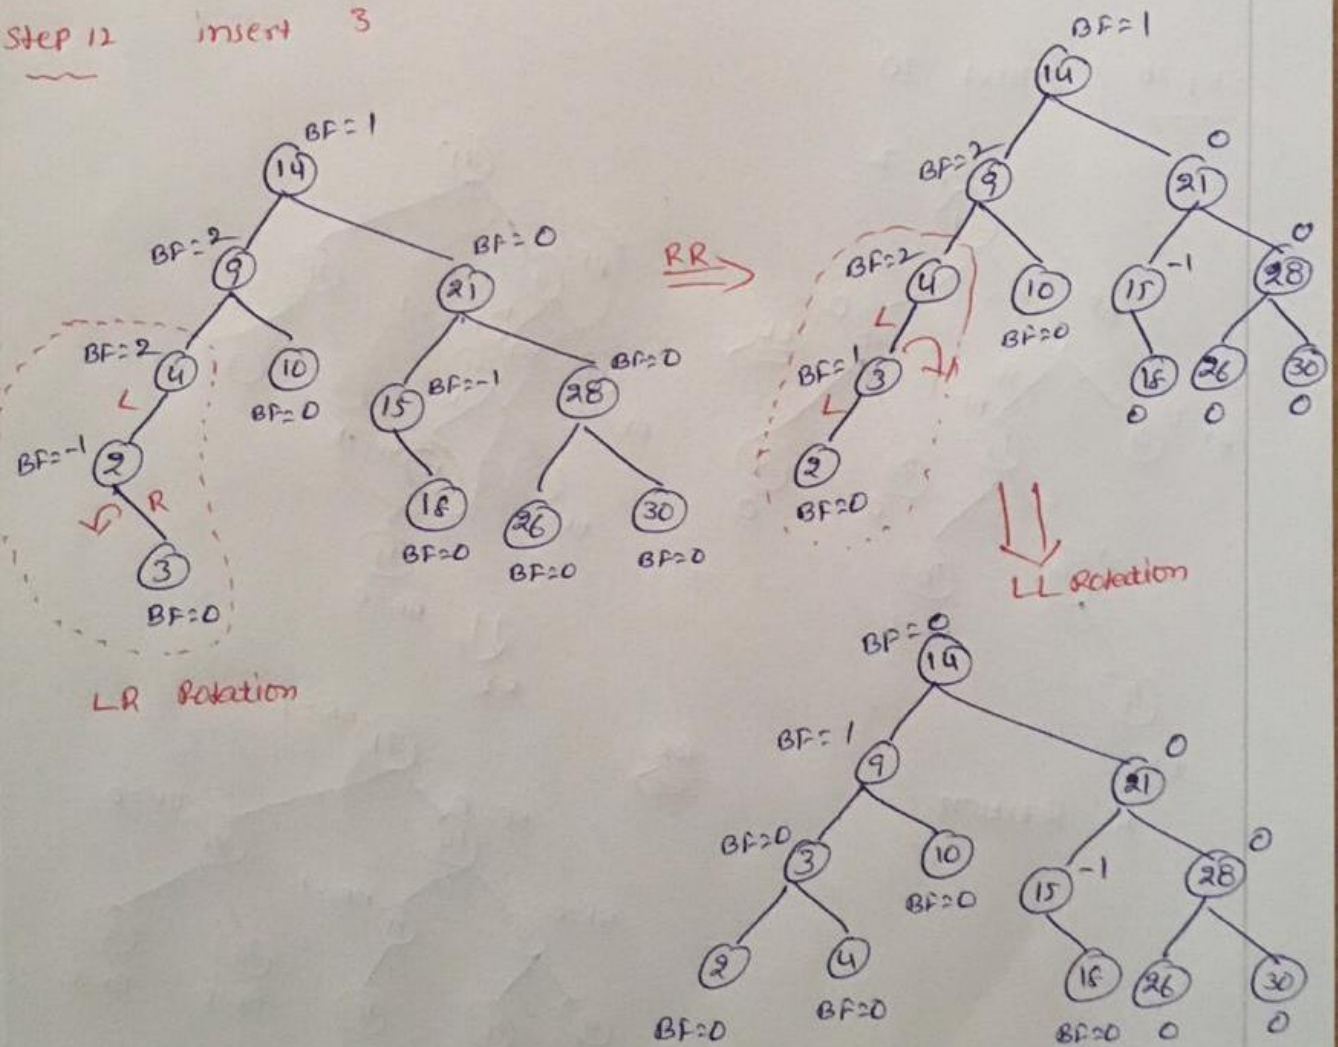 Step 12 insert 3
BF=1
14
BF=2
9
BF=0
21
BF=2
4
10
BF=0
L
BF=-1
15
BF=0
28
BF=-1
2
R
18
BF=0
26
BF=0
30
BF=0
3
BF=0
LR Rotation
RR
BF=1
14
BF=2
9
0
21
BF=2
4
10
BF=0
-1
15
0
28
L
BF=1
3
18
0
26
0
30
0
L
2
BF=0
LL Rotation
BF=0
14
BF=1
9
0
21
BF=0
3
10
BF=0
15
-1
28
0
2
BF=0
4
BF=0
18
BF=0
26
0
30
0